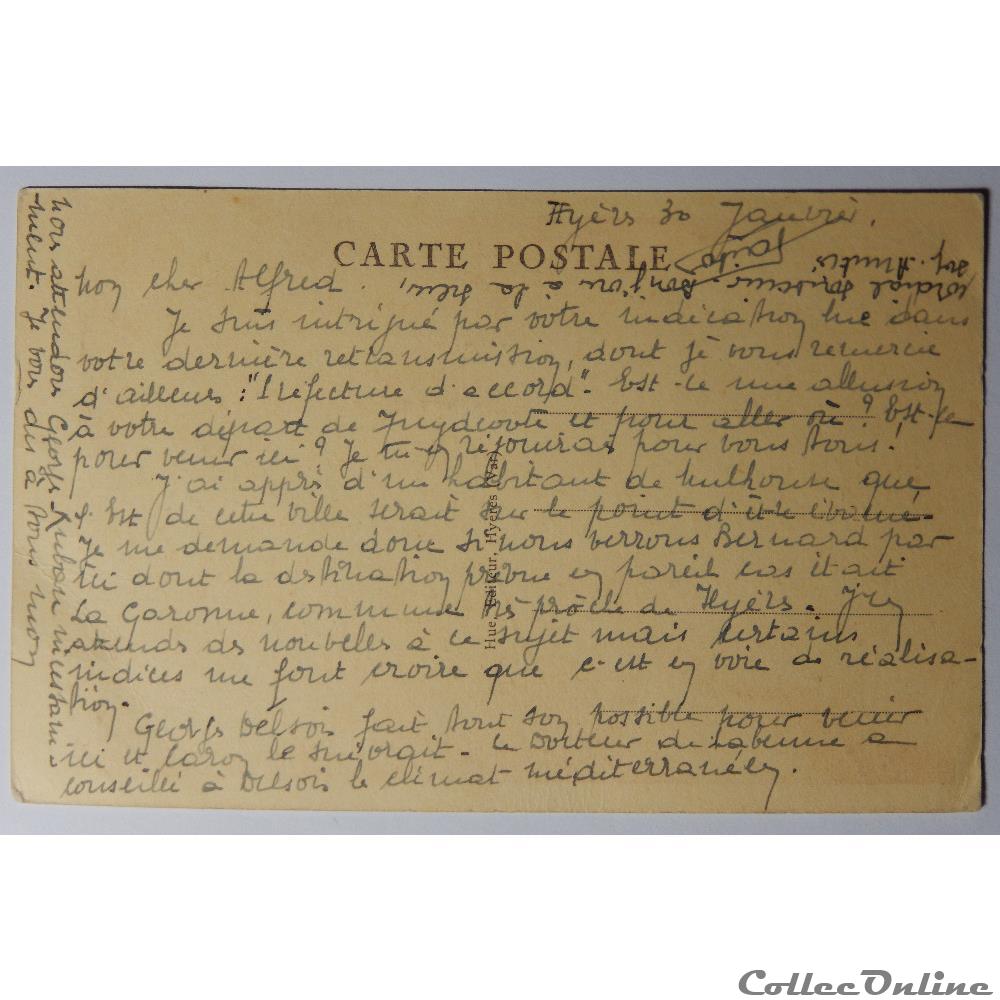 Hyères 30 Janvier.
CARTE POSTALE
Mon cher Alfred.
Je suis intrigué par votre indication lue dans
votre dernière retransmission, dont je vous remercie
d'ailleurs : "Préfecture d'accord". Est-ce une allusion
à votre départ de Zuydcoote et pour aller où ? Est-ce
pour venir ici ? Je m'en réjouirai pour vous tous !
J'ai appris d'un habitant de Mulhouse que
l'Est de cette ville serait sur le point d'être évacué.
Je me demande donc si nous verrons Bernard par
ici dont la destination prévue en pareil cas était
La Garonne, commune très proche de Hyères. J'en
attends des nouvelles à ce sujet mais certains
indices me font croire que c'est en voie de réalisa-
tion.
Georges Delsois fait tout son possible pour venir
ici et Caron le suivrait. Le Docteur de Labenne a
conseillé à Delsois le climat méditerranéen.
Nous attendons Georges Ruban incessam-
ment. Je vous dis à tous mon
cordial bonjour à la
Hue, Editeur, Hyères (Var)
CollecOnline